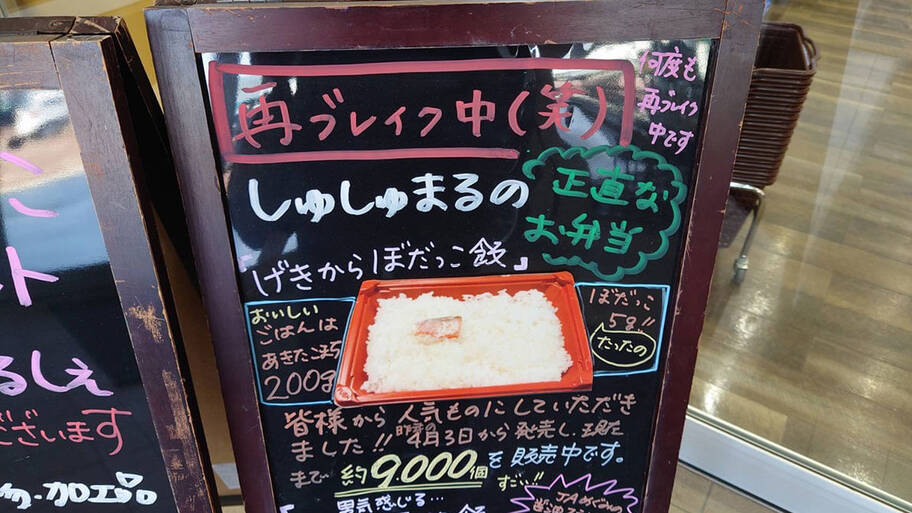 再ブレイク中(笑)
何度も
再ブレイク
中です
しゅしゅまるの
正直な
お弁当
『げきからぼだっこ飯』
おいしい
ごはんは
あきたこまち
200g
ぼだっこ
5g!!
たったの
皆様から人気ものにしていただき
ました!!昨年の4月3日から発売し、現在
まで 約9,000個を販売中です。
すごい!!
男気感じる…
JAめぐみの
こ
ト
るしぇ
ございます
加工品